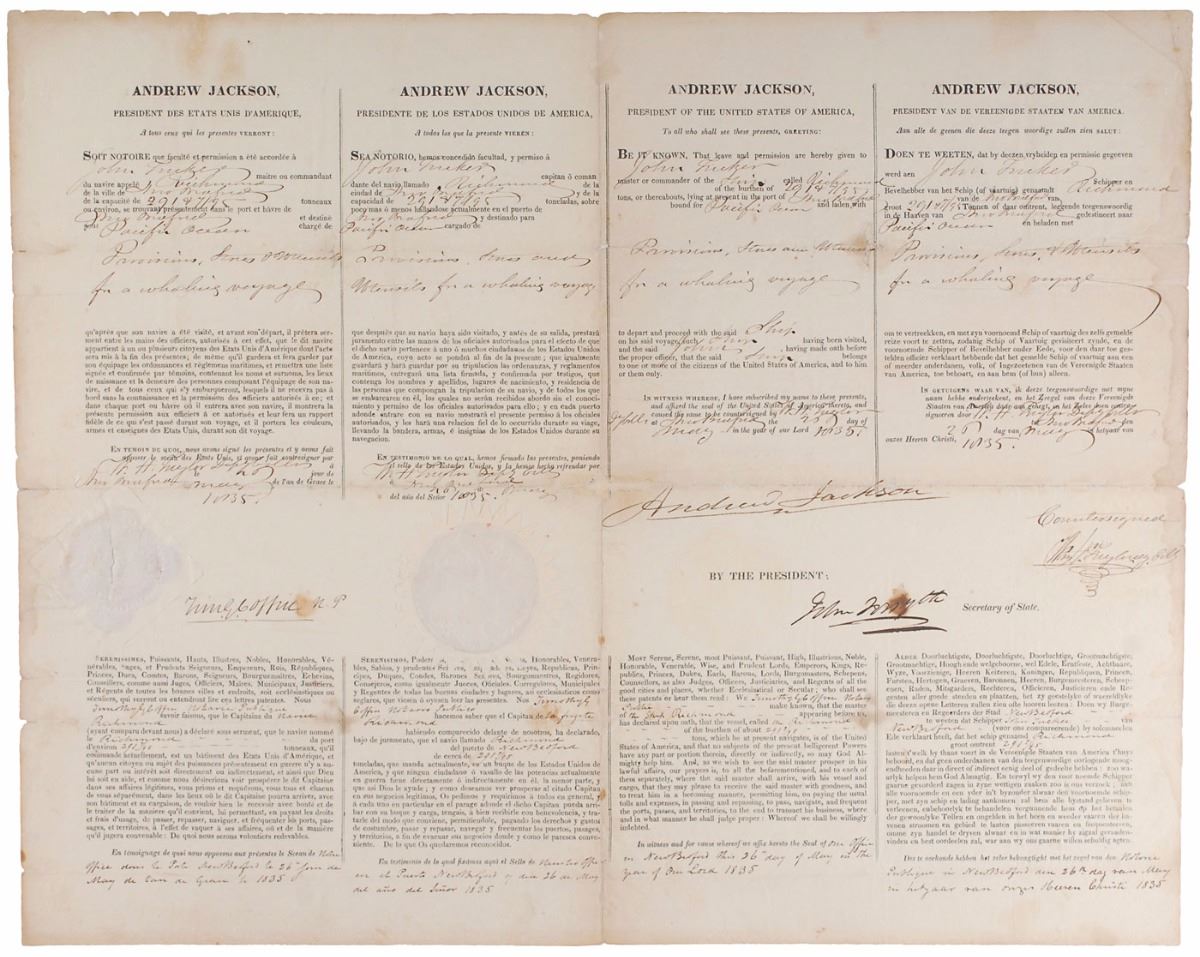 ANDREW JACKSON,
PRESIDENT DES ETATS UNIS D'AMERIQUE,
A tous ceux qui les presentes VERRONT:
SOIT NOTOIRE que faculté et permission a été accordée à
John Tucker maitre ou commandant
du navire appelé Richmond
de la ville de New Bedford
de la capacité de 291 47/95 tonneaux
ou environ, se trouvant présentement dans le port et hâvre de
New Bedford et destiné
pour Pacific Ocean chargé de
Provisions, Stores & Utensils
for a whaling voyage
qu'après que son navire a été visité, et avant son départ, il prêtera ser-
ment entre les mains des officiers, autorisés à cet effet, que le dit navire
appartient à un ou plusieurs citoyens des Etats Unis d'Amérique dont l'acte
sera mis à la fin des présentes; de même qu'il gardera et fera garder par
son équipage les ordonnances et réglemens maritimes, et remettra une liste
signée et confirmée par témoins, contenant les noms et surnoms, les lieux
de naissance et la demeure des personnes composant l'équipage de son na-
vire, et de tous ceux qui s'y embarqueront, lesquels il ne recevra pas à
bord sans la connaissance et la permission des officiers autorisés à ce; et
dans chaque port ou hâvre où il entrera avec son navire, il montrera la
présente permission aux officiers à ce autorisés et leur fera un rapport
fidèle de ce qui s'est passé durant son voyage, et il portera les couleurs,
armes et enseignes des Etats Unis, durant son dit voyage.
EN TEMOIN DE QUOI, nous avons signé les présentes et y avons fait
apposer le sceau des Etats Unis, et avons fait contresigner par
jour de
New Bedford May de l'an de Grace le
1835.
ANDREW JACKSON,
PRESIDENTE DE LOS ESTADOS UNIDOS DE AMERICA,
A todos los que la presente VIEREN:
SEA NOTORIO, hemos concedido facultad, y permiso á
John Tucker capitan ó coman
dante del navio llamado Richmond de la
ciudad de New Bedford y de la
capacidad de 291 47/95 toneladas, sobre
poco mas ó menos hallandose actualmente en el puerto de
New Bedford y destinado para
Pacific Ocean cargado de
Provisions, Stores and
Utensils for a whaling voyage
que después que su navio haya sido visitado, y antés de su salida, prestará
juramento entre las manos de los oficiales autorizados para el efecto de que
el dicho navio pertenece à uno ò muchos ciudadanos de los Estados Unidos
de America, cuyo acto se pondrá al fin de la presente; que igualmente
guardará y hará guardar por su tripulacion las ordenanzas, y reglamentos
maritimos, entregará una lista firmada, y confirmada por testigos, que
contenga los nombres y apellidos, lugares de nacimiento, y residencia de
las personas que compongan la tripulacion de su navio, y de todos los que
se embarcaren en él, los quales no serán recibidos abordo sin el conoci-
miento y permiso de los oficiales autorizados para ello; y en cada puerto
adonde entrare con su navio mostrará el presente permiso á los oficiales
fidible de lo ocurrido durante su viage,
llevando la bandera, armas, é insignias de los Estados Unidos durante su
navegacion.
EN TESTIMONIO DE LO QUAL, hemos firmado las presentes, poniendo
el sello de los Estados Unidos, y la hemos hecho refrendar por
del año del Señor 1835. May
ANDREW JACKSON,
PRESIDENT OF THE UNITED STATES OF AMERICA,
To all who shall see these presents, GREETING:
BE IT KNOWN, That leave and permission are hereby given to
John Tucker
master or commander of the Ship called Richmond
of the burthen of 291 47/95
tons, or thereabouts, lying at present in the port of New Bedford
bound for Pacific Ocean and laden with
Provisions, Stores and Utensils
for a whaling voyage
to depart and proceed with the said Ship
on his said voyage, such Ship having been visited,
and the said John having made oath before
the proper officer, that the said Ship belongs
to one or more of the citizens of the United States of America, and to him
or them only.
IN WITNESS WHEREOF, I have subscribed my name to these presents,
and affixed the seal of the United States of America thereto, and
caused the same to be countersigned by
at New Bedford the 26 day of
May in the year of our Lord 1835.
ANDREW JACKSON,
PRESIDENT VAN DE VEREENIGDE STAATEN VAN AMERICA.
Aan alle de geenen die deeze teegen woordige zullen zien SALUT:
DOEN TE WEETEN, dat by deezen vrybeiden en permissie gegeeven
werd aen John Tucker Schipper en
Bevelhebber van het Schip (of vaartuig) genaamdt Richmond
van de New Bedford
groot 291 47/95 Tonnen of daar omtrent, leggende teegenwoordig
in de Haven van New Bedford gedestineert naar
Pacific Ocean en beladen met
Provisions, Stores, & Utensils
for a whaling voyage
om te vertrekken, en met zyn voornoemd Schip of vaartuig des zelfs gemelde
reize voort te zetten, zodanig Schip of Vaartuig gevisiteert zynde, en de
voornoemde Schipper of Bevelhebber onder Eede, voor den daar toe ges-
telden officier verklaart hebbende dat het gemelde Schip of vaartuig aan een
of meerder onderdaanen, volk, of Ingezeetenen van de Vereenigde Staaten van
America, toe behoort, en aan hem (of hun) alleen.
IN GETUIGENIS WAAR VAN, ik deeze teegenwoordige met myne
naam hebbe onderteekent, en het Zeegel van deeze Vereenigde
Staaten van America daar aan gehegt, en het zelve doen contra-
signeeren door
te New Bedford den
26 dag van May in het jaar van
onzen Heeren Christi, 1835.
Andrew Jackson
Countersigned
BY THE PRESIDENT;
John Forsyth Secretary of State.
Timy G Coffin N.P
SERENISSIMES, Puissants, Hauts, Illustres, Nobles, Honorables, Vé-
nérables, Sages, et Prudents Seigneurs, Empereurs, Rois, Républiques,
Princes, Ducs, Comtes, Barons, Seigneurs, Bourguemaitres, Echevins,
Conseillers, comme aussi Juges, Officiers, Maires, Ministres, Justiciers,
et Régents de toutes les bonnes villes et endroits, soit ecclésiastiques ou
séculiers, qui verront ou entendront lire ces lettres patentes. Nous
Timothy G Coffin Notaire Publique
savoir faisons, que le Capitaine du Navire
Richmond
(ayant comparu devant nous) a déclaré sous serment, que le navire
nommé le Richmond du port
d'environ 291 47/95 tonneaux, qu'il
conduit actuellement, est un bâtiment des Etats Unis d'Amérique, et
qu'aucun citoyen ou sujet des puissances présentement en guerre n'y a au-
cune part ou intérêt soit directement ou indirectement, et ainsi que Dieu
lui soit en aide, et comme nous désirons que le dit Capitaine prospère
dans ses affaires légitimes, vous prions et requérons, vous tous et chacun
de vous séparément, dans les lieux où le dit Capitaine pourra arriver avec
son bâtiment et sa cargaison, de vouloir bien le recevoir avec bonté et de
le traiter de la manière qu'il convient, lui permettant, en payant les droits
et frais d'usage, de passer, repasser, naviguer, et fréquenter les ports, pas-
sages, et territoires, à l'effet de vaquer à ses affaires, où et de la manière
qu'il jugera convenable: De quoi nous serons volontiers redevables.
En témoignage de quoi nous apposons aux présentes le Sceau de Notre
Office dans le Port New Bedford le 26 Jour de
May de l'an de Grace le 1835
SERENISIMOS, Venera-
bles, Sabios, y prudentes Republicas, Prin-
cipes, Duques, Condes, Barones Bourgomaestres, Regidores,
Consejeros, como igualmente Jueces, Oficiales, Corregidores, Municipales
y Regentes de todas las buenas ciudades y lugares, asi ecclesiasticos como
seglares, que viesen ó oyesen leer las presentes. Nos Timothy G
Coffin Notario Publico
hacemos saber que el Capitan de la fregata
Richmond
habiendo comparecido delante de nosotros, ha declarado,
bajo de juramento, que el navio llamado Richmond
del puerto de New Bedford
de cerca de 291 47/95
toneladas, que manda actualmente, es un buque de los Estados Unidos de
America, y que ningun ciudadano ó vasallo de las potencias actualmente
en guerra tiene directamente ó indirectamente en él, la menor parte, y
que asi Dios le ayude; y como deseamos ver prosperar al citado Capitan
en sus negocios legitimos, Nos os rogamos y requerimos á todos en general, y
á cada uno en particular en el parage adonde el dicho Capitan pueda arri-
bar con su buque y carga, tengais, á bien recibirle con benevolencia, y tra-
tarle del modo que conviene, permitiendole, pagando los derechos y gastos
de costumbre, pasar y repasar, navegar y frecuentar los puertos, pasages,
y territorios, a fin de evacuar sus negocios donde y como le parezca conve-
niente. De lo que Os quedaremos reconocidos.
En testimonio de lo qual fixamos aqui el Sello de Nuestro Office
en el Puerto New Bedford a den 26 de May
del año del Señor 1835
MOST SERENE, Serene, most Puissant, Puissant, High, Illustrious, Noble,
Honorable, Venerable, Wise, and Prudent Lords, Emperors, Kings, Re-
publics, Princes, Dukes, Earls, Barons, Lords, Burgomasters, Schepens,
Counsellors, as also Judges, Officers, Justiciaries, and Regents of all the
good cities and places, whether Ecclesiastical or Secular; who shall see
these patents or hear them read: We Timothy G Coffin Notary
Public make known, that the master
of the Ship Richmond appearing before us,
has declared upon oath, that the vessel, called the Richmond
of the burthen of about 291 47/95
tons, which he at present navigates, is of the United
States of America, and that no subjects of the present belligerent Powers
have any part or portion therein, directly or indirectly, so may God Al-
mighty help him. And, as we wish to see the said master prosper in his
lawful affairs, our prayer is, to all the beforementioned, and to each of
them separately, where the said master shall arrive, with his vessel and
cargo, that they may please to receive the said master with goodness, and
treat him in a becoming manner, permitting him, on paying the usual
tolls and expenses, in passing and repassing, to pass, navigate, and frequent
the ports, passes, and territories, to the end to transact his business, where
and in what manner he shall judge proper: Whereof we shall be willingly
indebted.
In witness and for cause whereof we affix hereto the Seal of Our Office
in New Bedford this 26th day of May in the
year of Our Lord 1835
ALDER Doorluchtigste, Doorluchtigste, Doorluchtige, Grootmagtigste,
Grootmachtige, Hoogh ende welgeboorne, wel Edele, Erntfeste, Achtbaare,
Wyze, Voorzienige, Heeren Keizeren, Koningen, Republiquen, Princen,
Fursten, Hertogen, Graeven, Baronnen, Heeren, Burgemeesteren, Scheepe-
nen, Raden, Mitsgaders, Rechteren, Officieren, Justicieren ende Re-
genten aller goede steeden en plaatsen, het zy geestelyke of waereldlyke die
deeze opene Letteren zullen zien ofte hooren leezen: Doen wy Burge-
meesteren en Regeerders der Stad New Bedford
te weeten dat Schipper John Tucker van
New Bedford (voor ons compareerende) by solemneelen
Eed verklaart heeft, dat het schip genaamt Richmond
groot omtrent 291 47/95
lasten 't welk hy thans voert de Vereenigde Staaten van America t'huys
behoord, en dat geen onderdaanen van den teegenwoordige oorlogende moog-
endheeden daar in direct of indirect eenig deel of gedeelte hebben: zoo wa-
arlyk helpen hem God Almagtig. En terwyl wy den voor noemde Schipper
gaarne gevordert zagen in zyne wettigen zaaken zoo is ons verzoek; aan
alle voornoemde en ider van hen byzonder alwaar den voornoemde schip-
per, met zyn schip en lading aankomen, zal hem alle bystand gelieven te
doen ende behoorlyk te behandelen vergunnende hem op het betaalen
der gewoonlyke Tollen en ongelden in het heen en weeder vaaren der ha-
venen stroomen en gebied te laaten passeeren vaaren en te frequenteeren,
omme zyn handel te dryven alwaar en in wat manier hy zal geraaden-
vinden en best oordeelen zal, war aan wy ons gaarne willen schuldig agten.
Des te oorkonde hebben het zelve bekragtigt met het zegel van den Notaris
Publique in New Bedford den 26th dag van May
in het jaar van onzes Heeren Christi 1835